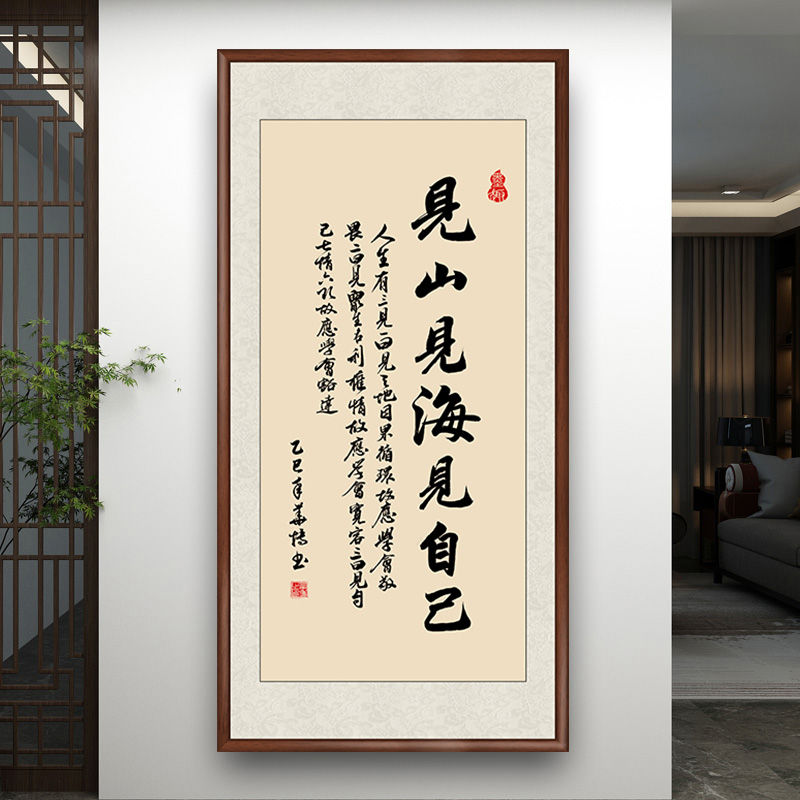 見山見海見自己
人生有三見一曰見天地因果循環故應學會敬
畏二曰見眾生名利權情故應學會寬容三曰見自
己七情六欲故應學會豁達
乙巳年